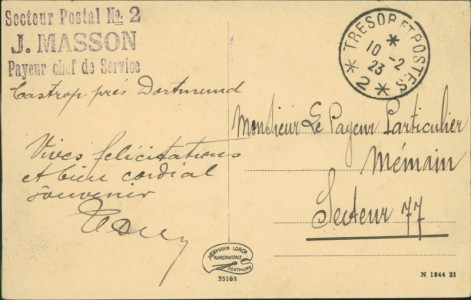 Secteur Postal No. 2
J. MASSON
Payeur chef de Service
Castrop près Dortmund
Vives félicitations
et bien cordial
souvenir
TRESOR ET POSTES
10-2
23
2
Monsieur Le Payeur Particulier
Mémain
Secteur 77
HERMANN LORCH
KUNSTANSTALT
DORTMUND
35169
N 1844 21